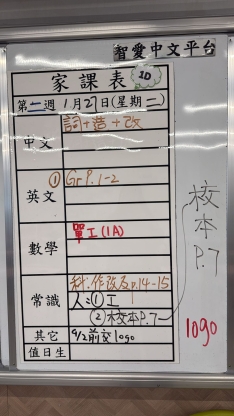 智愛中文平台
家課表 1D
第一週 1月27日(星期二)
中文 詞+造+改
英文 ① Gr P.1-2
數學 單工(1A)
常識 科:作改及p.14-15
人:①工
②校本P.7
其它 9/2前交logo
值日生
校本P.7
logo